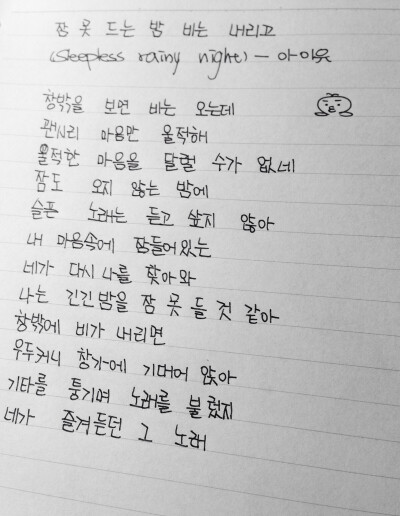 잠 못 드는 밤 비는 내리고
(Sleepless rainy night) - 아이유
창밖을 보면 비는 오는데
괜시리 마음만 울적해
울적한 마음을 달랠 수가 없네
잠도 오지 않는 밤에
슬픈 노래는 듣고 싶지 않아
내 마음속에 잠들어있는
네가 다시 나를 찾아와
나는 긴긴밤을 잠 못 들 것 같아
창밖에 비가 내리면
우두커니 창가에 기대어 앉아
기타를 퉁기며 노래를 불렀지
네가 즐겨듣던 그 노래